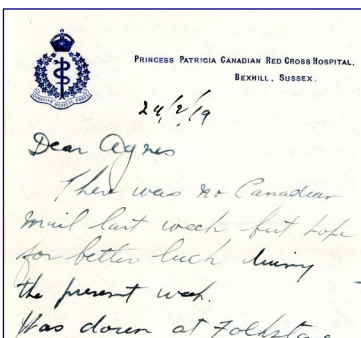 PRINCESS PATRICIA CANADIAN RED CROSS HOSPITAL,
BEXHILL, SUSSEX.
24/2/19
Dear Agnes
There was no Canadian
mail last week but hope
for better luck
the present week.
Was down at Folkstone